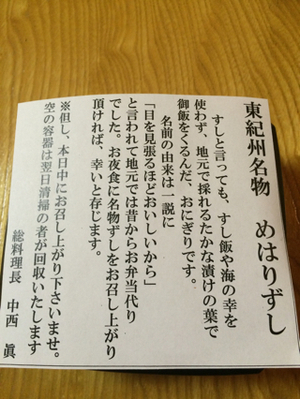 東紀州名物　めはりずし
すしと言っても、すし飯や海の幸を
使わず、地元で採れるたかな漬けの葉で
御飯をくるんだ、おにぎりです。
名前の由来は一説に
「目を見張るほどおいしいから」
と言われて地元では昔からお弁当代り
でした。お夜食に名物ずしをお召し上がり
頂ければ、幸いと存じます。
※但し、本日中にお召し上がり下さいませ。
空の容器は翌日清掃の者が回収いたします
総料理長　中西　眞